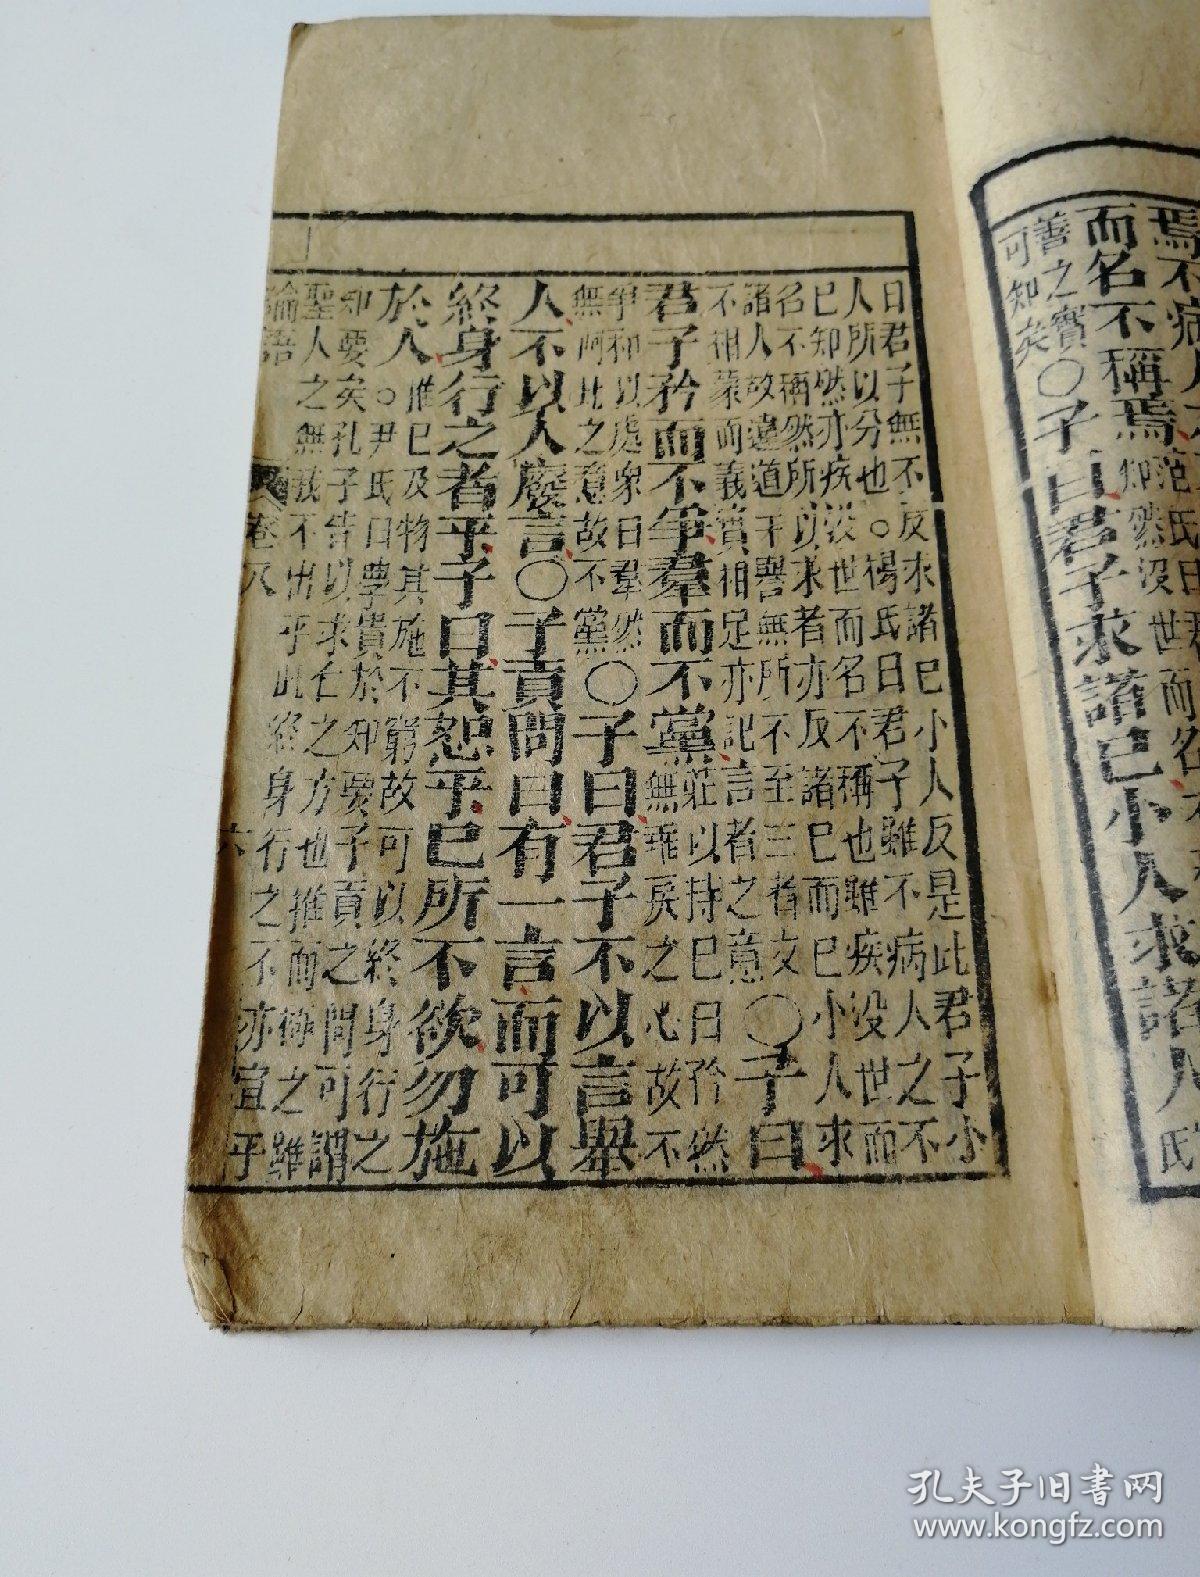 焉不病人
而名不稱焉
善之實
可知矣
○子曰君子求諸己小人求諸人
氏
曰君子無不反求諸己小人反是此君子小
人所以分也○楊氏曰君子雖不病人之不
己知然亦疾没世而名不稱也雖疾没世而
名不稱然所以求者亦反諸己而已小人求
諸人故違道干譽無所不至三者文
不相蒙而義實相足亦記言者之意
○子曰
君子矜而不爭羣而不黨
莊以持己曰矜然
無乖戾之心故不
爭和以處衆曰羣然
無阿比之意故不黨
○子曰君子不以言舉
人不以人廢言○子貢問曰有一言而可以
終身行之者乎子曰其恕乎己所不欲勿施
於人
推己及物其施不窮故可以終身行之
○尹氏曰學貴於知要子貢之問可謂
知要矣孔子告以求仁之方也推而極之雖
聖人之無我不出乎此終身行之不亦宜乎
論語 卷八 六
孔夫子旧书网
www.kongfz.com